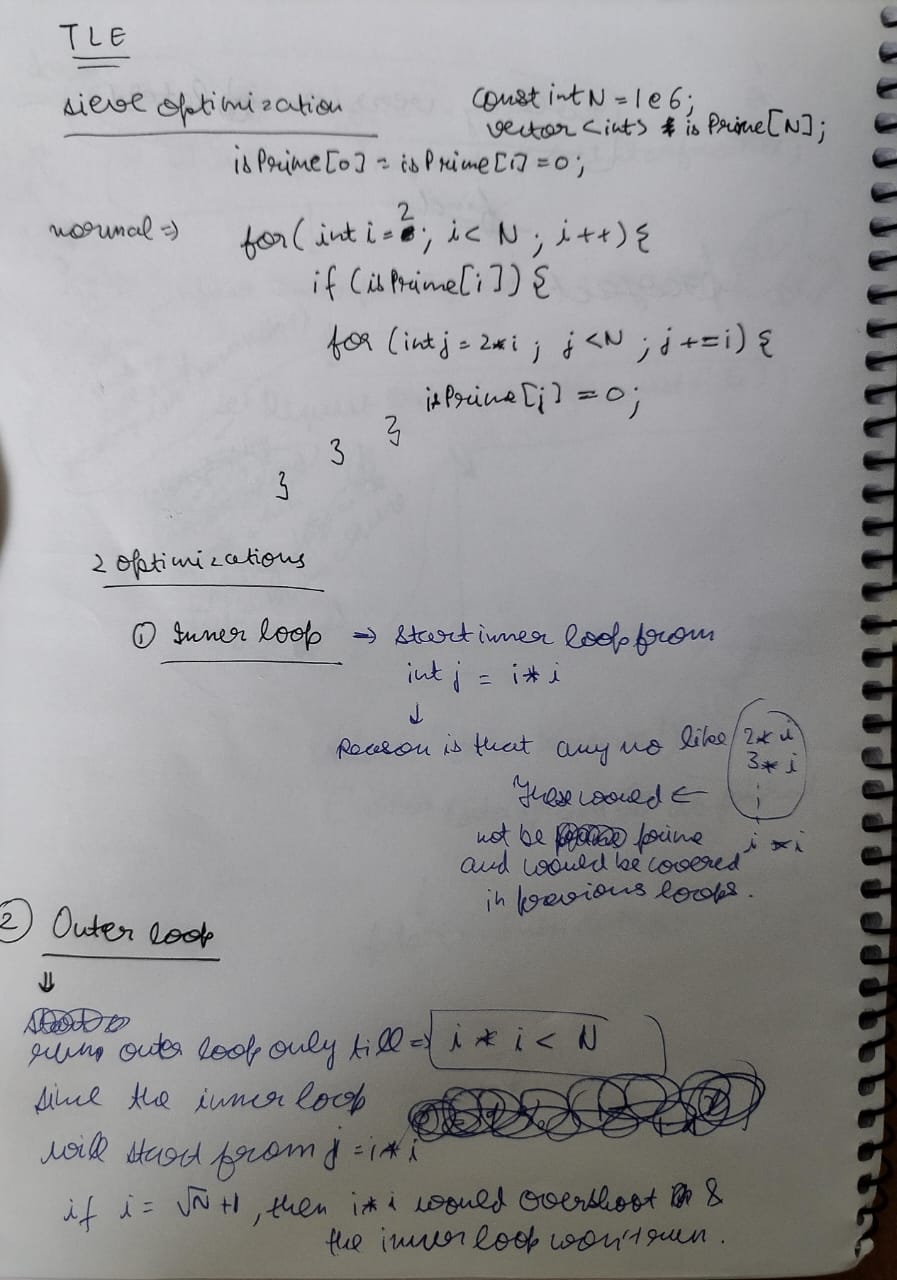 TLE
sieve optimization
const int N = 1e6;
vector <int> isPrime[N];
isPrime[0] = isPrime[1] = 0;
normal => for( int i = 2; i < N ; i++) {
if (isPrime[i]) {
for (int j = 2*i ; j < N ; j += i) {
isPrime[j] = 0;
}
}
}
2 optimizations
① Inner loop => Start inner loop from
int j = i * i
↓
Reason is that any no like 2* i
3* i
These would ←
not be prime i * i
and would be covered
in previous loops.
② Outer loop
⇓
outer loop only till => i * i < N
since the inner loop
will start from j = i * i
if i = √N +1, then i* i would overshoot &
the inner loop won't run.